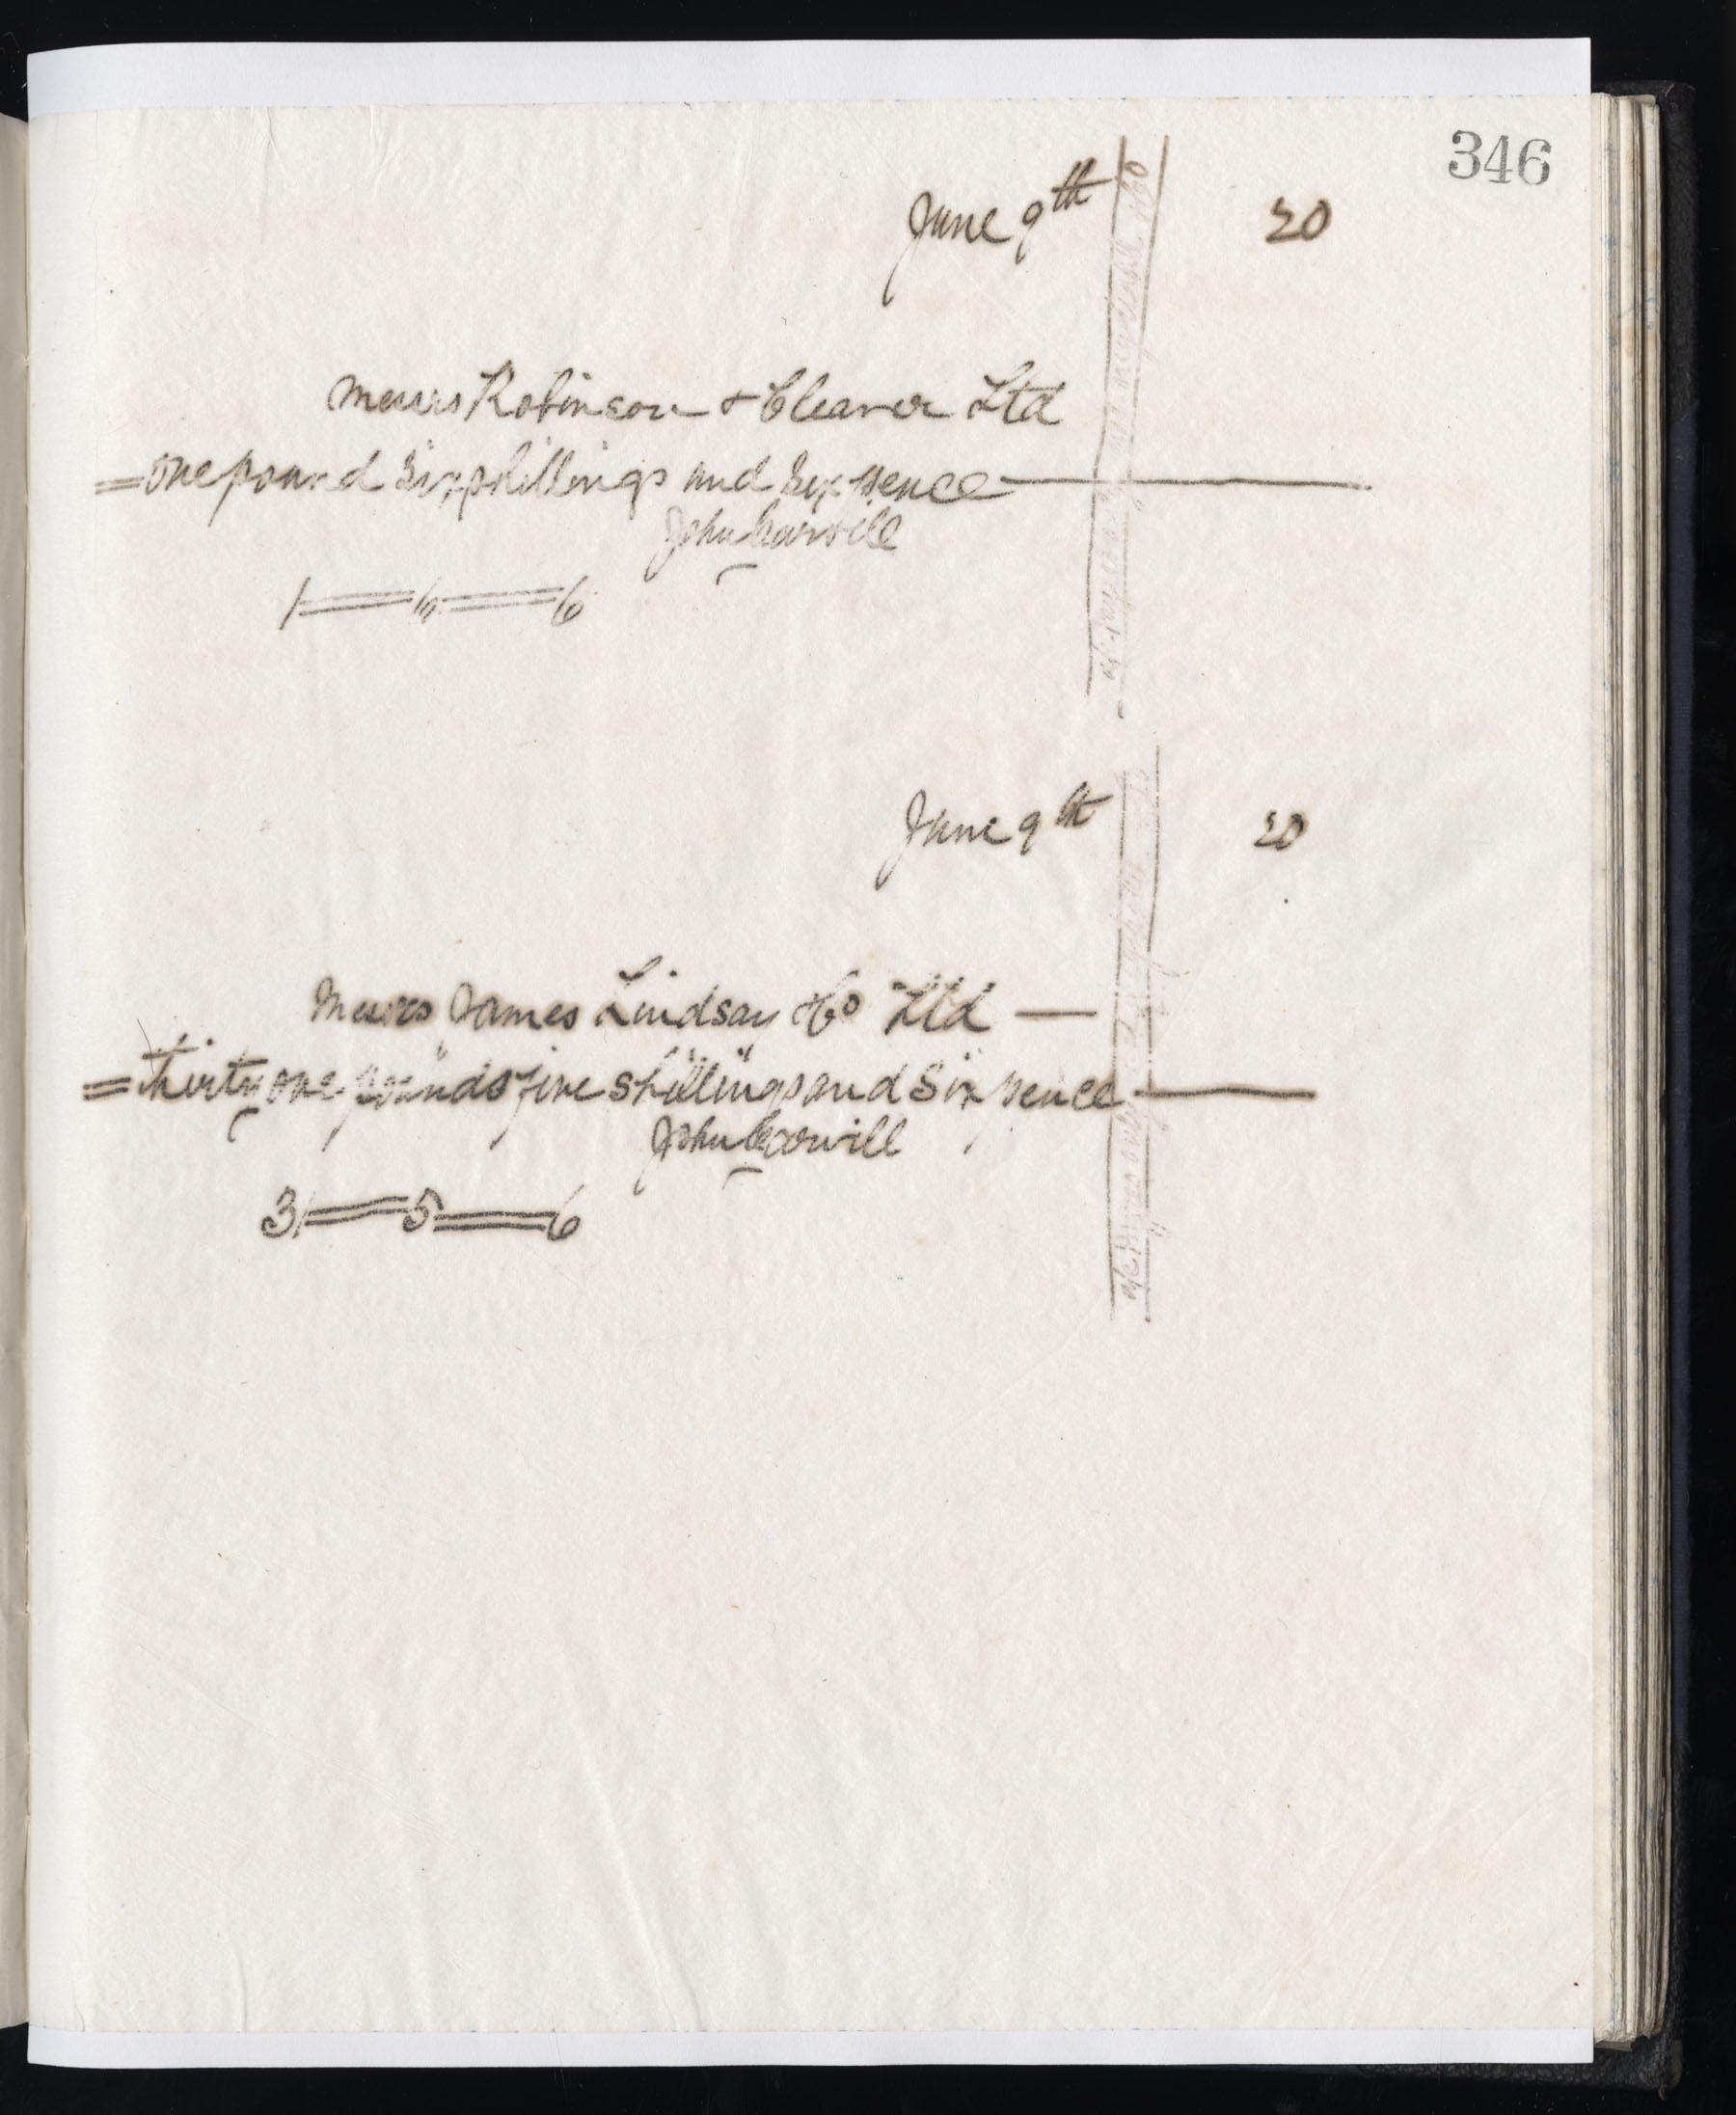 346
June 9th 20
Messrs Robinson & Cleaver Ltd
= one pound six shillings and six pence
John
1 == 6 == 6
June 9th 20
Messrs James Lindsay & Co Ltd —
= thirty one pounds five shillings and six pence
John
31 == 5 == 6